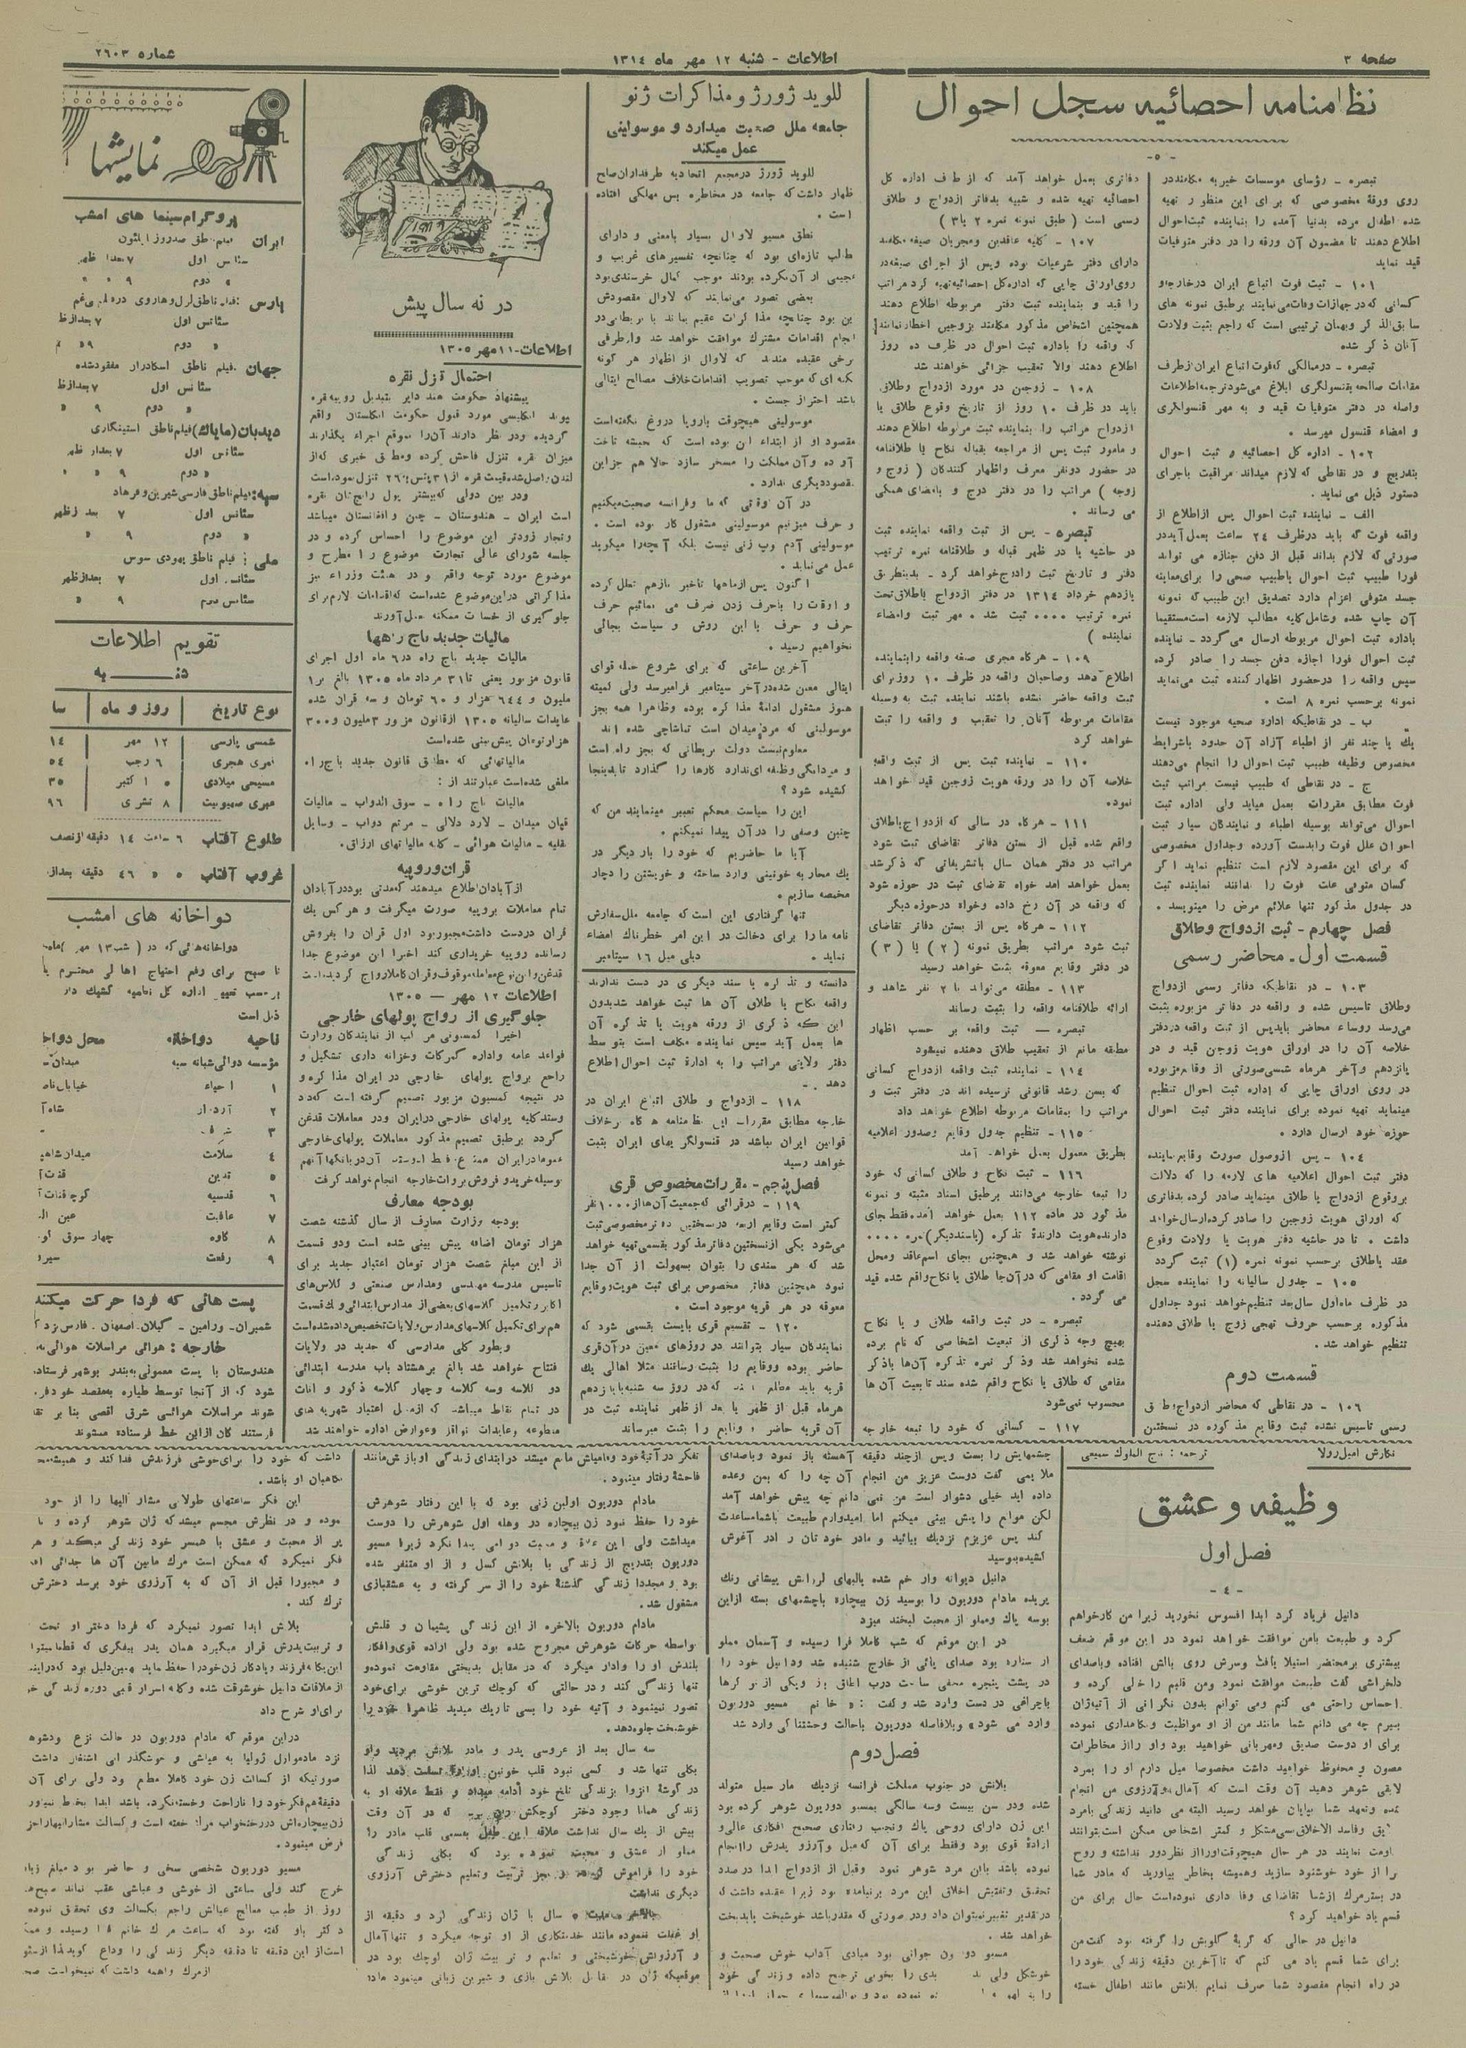 صفحه ۳
اطلاعات - شنبه ۱۲ مهر ماه ۱۳۱٤
شماره ۲٦۰۳
نظامنامه احصائیه سجل احوال
- ۵ -
تبصره - رؤسای موسسات خیریه مکلفند در
روی ورقهٔ مخصوصی که برای این منظور تهیه
شده اطفال مرده بدنیا آمده را بنماینده ثبت احوال
اطلاع دهند تا مضمون آن ورقه را در دفتر متوفیات
قید نماید
۱۰۱ - ثبت فوت اتباع ایران در خارجه و
کسانی که در جهازات وفات می‌نمایند برطبق نمونه های
سابق الذکر و بهمان ترتیبی است که راجع بثبت ولادت
آنان ذکر شده
تبصره - در ممالکی که فوت اتباع ایران از طرف
مقامات صالحه بقنسولگری ابلاغ می‌شود ترجمه اطلاعات
واصله در دفتر متوفیات قید و به مهر قنسولگری
و امضاء قنسول میرسد .
۱۰۲ - اداره کل احصائیه و ثبت احوال
بتدریج و در نقاطی که لازم میداند مراقبت باجرای
دستور ذیل می نماید .
الف - نماینده ثبت احوال پس از اطلاع از
واقعه فوت که باید در ظرف ۲٤ ساعت بعمل آید در
صورتی که لازم بداند قبل از دفن جنازه می تواند
فورا طبیب ثبت احوال یا طبیب صحی را برای معاینه
جسد متوفی اعزام دارد تصدیق این طبیب که نمونه
آن چاپ شده و شامل کلیه مطالب لازمه است مستقیما
باداره ثبت احوال مربوطه ارسال می گردد - نماینده
ثبت احوال فورا اجازه دفن جسد را صادر کرده
سپس واقعه را در حضور اظهار کننده ثبت می‌نماید
نمونه برحسب نمره ۸ است .
ب - در نقاطیکه اداره صحیه موجود نیست
یک یا چند نفر از اطباء آزاد آن حدود با شرایط
مخصوص وظیفه طبیب ثبت احوال را انجام می‌دهند
ج - در نقاطی که طبیب نیست مراتب ثبت
فوت مطابق مقررات بعمل میاید ولی اداره ثبت
احوال می‌تواند بوسیله اطباء و نمایندگان سیار ثبت
احوال علل فوت را بدست آورده و جداول مخصوصی
که برای این مقصود لازم است تنظیم نماید اگر
کسان متوفی علت فوت را ندانند نماینده ثبت
در جدول مذکور تنها علائم مرض را مینویسد .
فصل چهارم - ثبت ازدواج و طلاق
قسمت اول - محاضر رسمی
۱۰۳ - در نقاطیکه دفاتر رسمی ازدواج
وطلاق تاسیس شده و واقعه در دفاتر مزبوره بثبت
می‌رسد روساء محاضر باید پس از ثبت واقعه در دفتر
خلاصه آن را در اوراق هویت زوجین قید و در
پانزدهم و آخر هر ماه شمسی صورتی از وقایع مزبوره
در روی اوراق چاپی که اداره ثبت احوال تنظیم
مینماید تهیه نموده برای نماینده دفتر ثبت احوال
حوزه خود ارسال دارد .
۱۰٤ - پس از وصول صورت وقایع نماینده
دفتر ثبت احوال اعلامیه های لازمه را که دلالت
بر وقوع ازدواج یا طلاق مینماید صادر کرده بدفاتری
که اوراق هویت زوجین را صادر کرده ارسال خواهد
داشت . تا در حاشیه دفتر هویت یا ولادت وقوع
عقد یا طلاق برحسب نمونه نمره (۱) ثبت گردد
۱۰۵ - جدول سالیانه را نماینده سجل
در ظرف ماه اول سال بعد تنظیم خواهد نمود جداول
مذکوره برحسب حروف تهجی زوج یا طلاق دهنده
تنظیم خواهد شد .
قسمت دوم
۱۰٦ - در نقاطی که محاضر ازدواج و طلاق
رسمی تاسیس نشده ثبت وقایع مذکوره در نسختین
دفاتری بعمل خواهد آمد که از طرف اداره کل
احصائیه تهیه شده و شبیه بدفاتر ازدواج و طلاق
رسمی است ( طبق نمونه نمره ۲ یا ۳ )
۱۰۷ - کلیه عاقدین و مجریان صیغه مکلفند
دارای دفتر شرعیات بوده و پس از اجرای صیغه در
روی اوراق چاپی که اداره کل احصائیه تهیه کرده مراتب
را قید و بنماینده ثبت دفتر مربوطه اطلاع دهند
همچنین اشخاص مذکور مکلفند بزوجین اخطار نمایند
که واقعه را باداره ثبت احوال در ظرف ده روز
اطلاع دهند والا تعقیب جزائی خواهند شد
۱۰۸ - زوجین در مورد ازدواج و طلاق
باید در ظرف ۱۰ روز از تاریخ وقوع طلاق یا
ازدواج مراتب را بنماینده ثبت مربوطه اطلاع دهند
و مامور ثبت پس از مراجعه بقباله نکاح یا طلاقنامه
در حضور دو نفر معرف و اظهار کنندگان ( زوج و
زوجه ) مراتب را در دفتر درج و بامضای همگی
می رساند .
تبصره - پس از ثبت واقعه نماینده ثبت
در حاشیه یا در ظهر قباله و طلاقنامه نمره ترتیب
دفتر و تاریخ ثبت را درج خواهد کرد - بدینطریق
یازدهم خرداد ۱۳۱٤ در دفتر ازدواج یا طلاق تحت
نمره ترتیب ۰۰۰۰ ثبت شد . مهر ثبت وامضاء
نماینده )
۱۰۹ - هرگاه مجری صیغه واقعه را بنماینده
اطلاع دهد و صاحبان واقعه در ظرف ۱۰ روز برای
ثبت واقعه حاضر نشده باشند نماینده ثبت به وسیله
مقامات مربوطه آنان را تعقیب و واقعه را ثبت
خواهد کرد
۱۱۰ - نماینده ثبت پس از ثبت واقعه
خلاصه آن را در ورقه هویت زوجین قید خواهد
نمود .
۱۱۱ - هرگاه در سالی که ازدواج یا طلاق
واقع شده قبل از بستن دفاتر تقاضای ثبت شود
مراتب در دفتر همان سال با تشریفاتی که ذکر شد
بعمل خواهد آمد خواه تقاضای ثبت در حوزه شود
که واقعه در آن رخ داده و خواه در حوزه دیگر
۱۱۲ - هرگاه پس از بستن دفاتر تقاضای
ثبت شود مراتب بطریق نمونه ( ۲ ) یا ( ۳ )
در دفتر وقایع معوقه بثبت خواهد رسید
۱۱۳ - مطلقه می‌تواند با ۲ نفر شاهد و
ارائه طلاقنامه واقعه را بثبت رساند
تبصره — ثبت واقعه بر حسب اظهار
مطلقه مانع از تعقیب طلاق دهنده نمیشود
۱۱٤ - نماینده ثبت واقعه ازدواج کسانی
که بسن رشد قانونی نرسیده اند در دفتر ثبت و
مراتب را بمقامات مربوطه اطلاع خواهد داد
۱۱۵ - تنظیم جدول وقایع وصدور اعلامیه
بطریق معمول بعمل خواهد آمد
۱۱٦ - ثبت نکاح و طلاق کسانی که خود
را تبعه خارجه می‌دانند برطبق اسناد مثبته و نمونه
مذکور در ماده ۱۱۲ بعمل خواهد آمد فقط بجای
دارنده هویت دارندهٔ تذکره (یا سند دیگر) نمره ۰۰۰۰
نوشته خواهد شد و همچنین بجای اسم عاقد و محل
اقامت او مقامی که در آن جا طلاق یا نکاح واقع شده قید
می گردد .
تبصره - در ثبت واقعه طلاق و یا نکاح
بهیچ وجه ذکری از تبعیت اشخاصی که نام برده
شده نخواهد شد و ذکر نمره تذکره آن‌ها یا ذکر
مقامی که طلاق یا نکاح واقع شده سند تابعیت آن ها
محسوب نمی‌شود
۱۱۷ - کسانی که خود را تبعه خارجه
دانسته و تذکره یا سند دیگری در دست ندارند
واقعه نکاح یا طلاق آن ها ثبت خواهد شد بدون
این که ذکری از ورقه هویت یا تذکره آن
ها بعمل آید سپس نماینده مکلف است بتوسط
دفتر ولایتی مراتب را به ادارهٔ ثبت احوال اطلاع
دهد . -
۱۱۸ - ازدواج و طلاق اتباع ایران در
خارجه مطابق مقررات این نظامنامه هرگاه برخلاف
قوانین ایران نباشد در قنسولگریهای ایران بثبت
خواهد رسید
فصل پنجم - مقررات مخصوص قری
۱۱۹ - در قرائی که جمعیت آن ها از ۱۰۰۰ نفر
کمتر است وقایع اربعه در نسختین دفتر مخصوصی ثبت
می‌شود یکی از نسختین دفاتر مذکور بقسمی تهیه خواهد
شد که هر سندی را بتوان بسهولت از آن جدا
نمود همچنین دفاتر مخصوص برای ثبت هویت و وقایع
معوقه در هر قریه موجود است .
۱۲۰ - تقسیم قری بایست بقسمی شود که
نمایندگان سیار بتوانند در روزهای معین در آن قری
حاضر بوده و وقایع را بثبت رسانند مثلا اهالی یک
قریه باید مطلع باشند که در روز سه شنبه یا پانزدهم
هر ماه قبل از ظهر یا بعد از ظهر نماینده ثبت در
آن قریه حاضر و وقایع را بثبت میرساند
للوید ژورژ و مذاکرات ژنو
جامعه ملل صحبت میدارد و موسولینی
عمل میکند
للوید ژورژ در مجمع اتحادیه طرفداران صلح
ظهار داشت که جامعه در مخاطره بس مهلکی افتاده
است .
نطق مسیو لاوال بسیار بامعنی و دارای
طالب تازه‌ای بود که چنانچه تفسیرهای غریب و
عجیبی از آن نکرده بودند موجب کمال خرسندی بود
بعضی تصور می‌نمایند که لاوال مقصودش
ین بود چنانچه مذاکرات عقیم بماند با بریطانی در
انجام اقدامات مشترک موافقت خواهد شد و از طرفی
برخی عقیده مندند که لاوال از اظهار هر گونه
که موجب تصویب اقدامات خلاف مصالح ایتالی
باشد احتراز جست .
موسولینی هیچوقت باروپا دروغ نگفته است
مقصود او از ابتداء این بوده است که حبشه تاخت
آورده و آن مملکت را مسخر سازد حالا هم جز این
مقصود دیگری ندارد .
در آن وقتی که ما و فرانسه صحبت میکنیم
و حرف میزنیم موسولینی مشغول کار بوده است .
موسولینی آدم گپ زنی نیست بلکه آنچه را میگوید
عمل می‌نماید .
اکنون پس از ماهها تاخیر بازهم تعلل کرده
و اوقات را باحرف زدن صرف می نمائیم حرف
حرف و حرف با این روش و سیاست بجائی
نخواهیم رسید .
آخرین ساعتی که برای شروع حمله قوای
ایتالی معین شده در آخر سپتامبر فرامیرسد ولی کمیته
هنوز مشغول ادامهٔ مذاکره بوده وظاهرا همه بجز
موسولینی که مرد میدان است تماشاچی شده اند
معلوم نیست دولت بریطانی که بجز راه است
و مردانگی وظیفه‌ای ندارد کارها را گذارد تا بدینجا
کشیده شود ؟
این را سیاست محکم تعبیر مینمایند من که
چنین وصفی را در آن پیدا نمیکنم .
آیا ما حاضریم که خود را بار دیگر در
یک محاربه خونینی وارد ساخته و خویشتن را دچار
مخمصه سازیم .
تنها گرفتاری این است که جامعه ملل سفارش
نامه ما را برای دخالت در این امر خطرناک امضاء
نماید . دیلی میل ۱٦ سپتامبر
در نه سال پیش
اطلاعات - ۱۱ مهر ۱۳۰۵
احتمال تنزل نقره
پیشنهاد حکومت هند دایر بتبدیل روپیه نقره
پوند انگلیسی مورد قبول حکومت انگلستان واقع
گردیده ودر نظر دارند آن را بموقع اجراء بگذارند
میزان نقره تنزل فاحش کرده و مطابق خبری که از
لندن واصل شده قیمت نقره از ۳۱ پنس به ۲٦ تنزل نموده است
ودر بین دولی که بیشتر پول رایجشان نقره
است ایران - هندوستان - چین و افغانستان میباشد
وتجار زودتر این موضوع را احساس کرده و در
جلسه شورای عالی تجارت موضوع را مطرح و
موضوع مورد توجه واقع و در هیئت وزراء نیز
مذاکراتی در این موضوع شده است که اقدامات لازم برای
جلوگیری از خسارات ممکنه بعمل آورند
مالیات جدید باج راهها
مالیات جدید باج راه در ٦ ماه اول اجرای
قانون مزبور یعنی تا ۳۱ مرداد ماه ۱۳۰۵ بالغ بر ۱
ملیون و ٦٤٤ هزار و ٦۰ تومان و سه قران شده
عایدات سالیانه ۱۳۰۵ از قانون مزبور ۳ ملیون و ۳۰۰
هزار تومان پیش بینی شده است
مالیاتهائی که مطابق قانون جدید باج راه
ملغی شده است عبارتند از :
مالیات باج راه - سوق الدواب - مالیات
قپان میدان - لارد دلالی - مرتع دواب - وسایل
نقلیه - مالیات هوائی - کلیه مالیاتهای ارزاق .
قران و روپیه
از آبادان اطلاع میدهند که مدتی بود در آبادان
تمام معاملات بروپیه صورت میگرفت و هرکس یک
قران در دست داشت مجبور بود اول قران را بفروش
رسانده روپیه خریداری کند اخیرا این موضوع جدا
قدغن و این نوع معامله موقوف و قران کاملا رواج گردیده است
اطلاعات ۱۲ مهر — ۱۳۰۵
جلوگیری از رواج پولهای خارجی
اخیرا کمیسیونی مرکب از نمایندگان وزارت
فواعد عامه واداره گمرکات وخزانه داری تشکیل و
راجع برواج پولهای خارجی در ایران مذاکره و
در نتیجه کمسیون مزبور تصمیم گرفته است که داد
وستد کلیه پولهای خارجی در ایران ودر معاملات قدغن
گردد برطبق تصمیم مذکور معاملات پولهای خارجی
عموما در ایران ممنوع فقط داد و ستد آن در بانکها آنهم
بوسیله خرید و فروش بروات خارجه انجام خواهد گرفت
بودجه معارف
بودجه وزارت معارف از سال گذشته شصت
هزار تومان اضافه پیش بینی شده است ودو قسمت
از این مبلغ شصت هزار تومان اعتبار جدید برای
تاسیس مدرسه مهندسی ومدارس صنعتی و کلاس‌های
اکابر و تکمیل کلاسهای بعضی از مدارس ابتدائی و یک قسمت
هم برای تکمیل کلاسهای مدارس ولایات تخصیص داده شده است
وبطور کلی مدارسی که جدید در ولایات
افتتاح خواهد شد بالغ بر هشتاد باب مدرسه ابتدائی
دو کلاسه وسه کلاسه و چهار کلاسه ذکور و اناث
در تمام نقاط میباشد که از محل اعتبار شهریه های
نمایشها
پروگرام سینما های امشب
ایران
سئانس اول ۷ بعداز ظهر
« دوم ۹ « «
پارس :
سئانس اول ۷ بعداز ظ
« دوم ۹
جهان - فیلم ناطق اسکادران مفقود شده
سئانس اول ۷ بعداز ظ
« دوم ۹ «
دیدبان (مایاک) فیلم ناطق استینگاری
سئانس اول ۷ بعداز ظهر
« دوم ۹ « «
سپه : فیلم ناطق فارسی شیرین و فرهاد
سئانس اول ۷ بعد از ظهر
« دوم ۹ «
ملی : فیلم ناطق یهودی سوس
سئانس اول ۷ بعداز ظهر
سئانس دوم ۹ «
تقویم اطلاعات
نوع تاریخ | روز و ماه | سا
شمسی پارسی | ۱۲ مهر | ۱٤
قمری هجری | ٦ رجب | ۵٤
مسیحی میلادی | ۵ اکتبر | ۳۵
عبری صهیونیت | ۸ تشری | ۹٦
طلوع آفتاب ٦ ساعت ۱٤ دقیقه از نصف
غروب آفتاب ۵ « ٤٦ دقیقه بعداز
دواخانه های امشب
دواخانه هائی که در ( شب ۱۳ مهر ) ماه
تا صبح برای رفع احتیاج اهالی محترم با
برحسب تعیین اداره کل نظمیه کشیک دار
ذیل است
ناحیه دواخانه محل دواخ
مؤسسه دوائی شبانه سپه میدان س
۱ احیاء خیابان ناص
۲
۳
٤ سلامت میدان شاهپ
۵ تدین
٦ قدسیه
۷ عافیت عین ال
۸ کاوه چهار سوق کو
۹ رفعت سیرو
پست هائی که فردا حرکت میکند
شمیران - ورامین - گیلان - اصفهان - فارس یزد ک
خارجه : هوائی مراسلات هوائی به
هندوستان با پست معمولی به بندر بوشهر فرستاده
شود که از آنجا توسط طیاره بمقصد خود فر
شوند مراسلات هوائی شرق اقصی بنا بر تقا
فرستندگان از این خط فرستاده میشوند
نگارش امیل زولا
ترجمه : تاج الملوک سمیعی
وظیفه و عشق
فصل اول
- ٤ -
دانیل فریاد کرد ابدا افسوس نخورید زیرا من کار خواهم
کرد و طبیعت بامن موافقت خواهد نمود در این موقع ضعف
بیشتری بر محتضر استیلا یافت وسرش روی بالش افتاده وباصدای
دلخراشی گفت طبیعت موافقت نمود ومن قلبم را خالی کرده و
احساس راحتی می کنم ومی توانم بدون نگرانی از آتیه ژان
بمیرم چه می دانم شما مانند من از او مواظبت ونگاهداری نموده
برای او دوست صدیق و مهربانی خواهید بود واو را از مخاطرات
مصون و محفوظ خواهید داشت مخصوصا میل دارم او را بمرد
لایقی شوهر دهید آن وقت است که آمال و آرزوی من انجام
شده وتعهد شما بپایان خواهد رسید البته می دانید زندگی با مرد
لایق وفاسد الاخلاق بسی مشکل و کمتر اشخاص ممکن است بتوانند
قاومت نمایند در هر حال هیچوقت اورا از نظر دور نداشته و روح
را از خود خوشنود سازید و همیشه بخاطر بیاورید که مادر شما
در بستر مرگ از شما تقاضای وفاداری نموده است حال برای من
قسم یاد خواهید کرد ؟
دانیل در حالی که گریه گلویش را گرفته بود گفت من
برای شما قسم یاد می کنم که تا آخرین دقیقه زندگی خود را
در راه انجام مقصود شما صرف نمایم بلانش مانند اطفال خسته
چشمهایش را بست وپس از چند دقیقه آهسته باز نمود وباصدای
ملایمی گفت دوست عزیز من انجام آن چه را که بمن وعده
داده اید خیلی دشوار است من نمی دانم چه پیش خواهد آمد
لکن موانع را پیش بینی میکنم اما امیدوارم طبیعت باشما مساعدت
کند پس عزیزم نزدیک بیائید و مادر خودتان را در آغوش
کشیده ببوسید
دانیل دیوانه وار خم شده بالبهای لرزانش پیشانی رنگ
پریده مادام دوریون را بوسید زن بیچاره با چشمهای بسته از این
بوسه پاک ومملو از محبت لبخند میزد
در این موقع که شب کاملا فرا رسیده و آسمان مملو
از ستاره بود صدای پائی از خارج شنیده شد ودانیل خود را
در پشت پنجره مخفی ساخت درب اطاق باز ویکی از نوکرها
با چراغی در دست وارد شد و گفت : « خانم مسیو دوریون
وارد می شود » وبلافاصله دوریون باحالت وحشتناکی وارد شد
فصل دوم
بلانش در جنوب مملکت فرانسه نزدیک مارسیل متولد
شده ودر سن بیست وسه سالگی بمسیو دوریون شوهر کرده بود
این زن دارای روحی پاک ونجیب رفتاری صحیح افکاری عالی و
ارادهٔ قوی بود وفقط برای آن که میل و آرزو پدرش را انجام
نموده باشد باین مرد شوهر نمود وقبل از ازدواج ابدا درصدد
تحقیق و تفتیش اخلاق این مرد برنیامده بود زیرا عقیده داشت که
در تقدیر تغییر نمیتوان داد ودر صورتی که مقدر باشد خوشبخت یا بدبخت
خواهد شد .
مسیو دوریون جوانی بود مبادی آداب خوش صحبت و
تفکر در آتیهٔ خود وعیاش مایم میشد در ابتدای زندگی او باز ش مانند
فاحشهٔ رفتار مینمود .
مادام دوریون اولین زنی بود که با این رفتار شوهرش
خود را حفظ نمود زن بیچاره در وهله اول شوهرش را دوست
میداشت ولی این عشق و محبت دوامی پیدا نکرد زیرا مسیو
دوریون بتدریج از زندگی با بلانش کسل و از او متنفر شده
بود و مجددا زندگی گذشتهٔ خود را از سر گرفته و به عشقبازی
مشغول شد .
مادام دوریون بالاخره از این زندگی پشیمان و قلبش
بواسطه حرکات شوهرش مجروح شده بود ولی اراده قوی وافکار
بلندش او را وادار میکرد که در مقابل بدبختی مقاومت نموده و
تنها زندگی کند و در حالتی که کوچک ترین خوشی برای خود
تصور نمینمود و آتیه خود را بسی تاریک میدید ظاهرا خود را
خوشبخت جلوه دهد .
سه سال بعد از عروسی پدر و مادر بلانش مردند واو
بکلی تنها شد و کسی نبود قلب خونین او را تسلیت دهد لذا
در گوشهٔ انزوا بزندگی تلخ خود ادامه میداد و فقط علاقه او به
زندگی همانا وجود دختر کوچکش ژان بود که در آن وقت
بیش از یک سال نداشت علاقه این طفل بقسمی قلب مادر را
مملو از عشق و محبت نموده بود که بکلی زندگی
خود را فراموش کرده و بجز تربیت وتعلیم دخترش آرزوی
دیگری نداشت
بالاخره مدت ۵ سال با ژان زندگی کرد و دقیقه از
او غفلت ننموده مانند خدمتکاری از او توجه میکرد و تنها آمال
و آرزویش خوشبختی و تعلیم و تربیت ژان کوچک بود در
موقعیکه ژان در مقابل بلانش بازی و شیرین زبانی مینمود مادر
داشت که خود را برای خوشی فرزندش فدا کند و همیشه
نگاهبان او باشد .
این فکر ساعتهای طولانی مشار الیها را از خود
نموده و در نظرش مجسم میشد که ژان شوهر کرده و
پر از محبت و عشق با همسر خود زندگی میکند و هر
فکر نمیکرد که ممکن است مرگ مابین آن ها جدائی اف
و مجبورا قبل از آن که به آرزوی خود برسد دخترش
ترک کند .
بلانش ابدا تصور نمیکرد که فردا دختر او تحت
و تربیت پدرش قرار میگیرد همان پدر بیفکری که قطعا میتوا
این یگانه فرزند و یادگار زن خود را حفظ نماید بهمین دلیل بود که در اینم
از ملاقات دانیل خوشوقت شده و کلیه اسرار قلبی دوره زندگی خو
برای او شرح داد
در این موقع که مادام دوریون در حالت نزع بود شوه
نزد مادموازل ژولیا به عیاشی و خوشگذرانی اشتغال داشت
صورتیکه از کسالت زن خود کاملا مطلع بود ولی برای آن
دقیقهٔ هم فکر خود را ناراحت و خسته نکرده باشد ابدا بخاطر نمیاور
زن بیچاره‌اش در رختخواب مرگ خفته است و کسالت مشارالیها را جز
فرض مینمود .
مسیو دوریون شخصی سخی و حاضر بود مبلغ زیا
خرج کند ولی ساعتی از خوشی و عیاشی عقب نماند صبح
روز از طبیب معالج عیالش راجع بکسالت وی تحقیق نموده
دکتر باو گفته بود که ساعت مرگ خانم فرا رسیده و ممک
است از این دقیقه تا دقیقه دیگر زندگی را وداع گوید لذا از شو
از مرگ واهمه داشت که نمیخواست صح